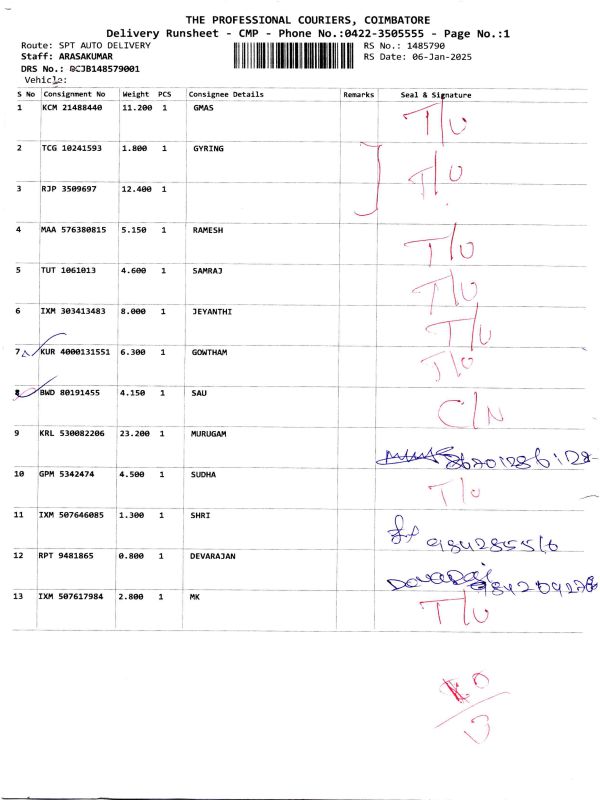 THE PROFESSIONAL COURIERS, COIMBATORE
Delivery Runsheet - CMP - Phone No.:0422-3505555 - Page No.:1
Route: SPT AUTO DELIVERY RS No.: 1485790
Staff: ARASAKUMAR RS Date: 06-Jan-2025
DRS No.: BCJB148579001
Vehicle:
S No Consignment No Weight PCS Consignee Details Remarks Seal & Signature
1 KCM 21488440 11.200 1 GMAS T/U
2 TCG 10241593 1.800 1 GYRING T/U
3 RJP 3509697 12.400 1
4 MAA 576380815 5.150 1 RAMESH T/U
5 TUT 1061013 4.600 1 SAMRAJ T/U
6 IXM 303413483 8.000 1 JEYANTHI T/U
7 KUR 4000131551 6.300 1 GOWTHAM T/U
8 BWD 80191455 4.150 1 SAU C/N
9 KRL 530082206 23.200 1 MURUGAM
10 GPM 5342474 4.500 1 SUDHA T/U
11 IXM 507646085 1.300 1 SHRI
12 RPT 9481865 0.800 1 DEVARAJAN Devaraj
13 IXM 507617984 2.800 1 MK T/U